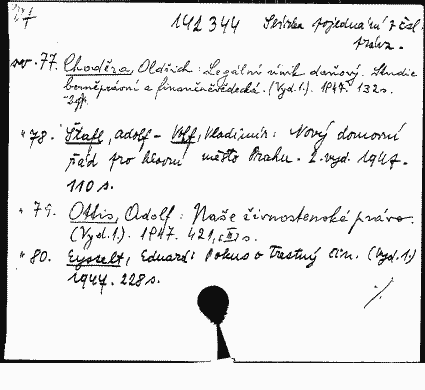 I
T
142344 Sbírka pojednání z čsl.
práva.
sv. 77. Choděra, Oldřich: Legální únik daňový. Studie
berněprávní a finančněvědecká. (Vyd. 1.). 1947. 132 s.
" 78. Štafl, Adolf - Volf, Vladimír: Nový domovní
řád pro hlavní město Prahu. 2. vyd. 1947.
110 s.
" 79. Ottis, Adolf: Naše živnostenské právo.
(Vyd. 1.). 1947. 421, [II] s.
" 80. Eysselt, Eduard: Pokus o trestný čin. (Vyd. 1.)
1947. 228 s.